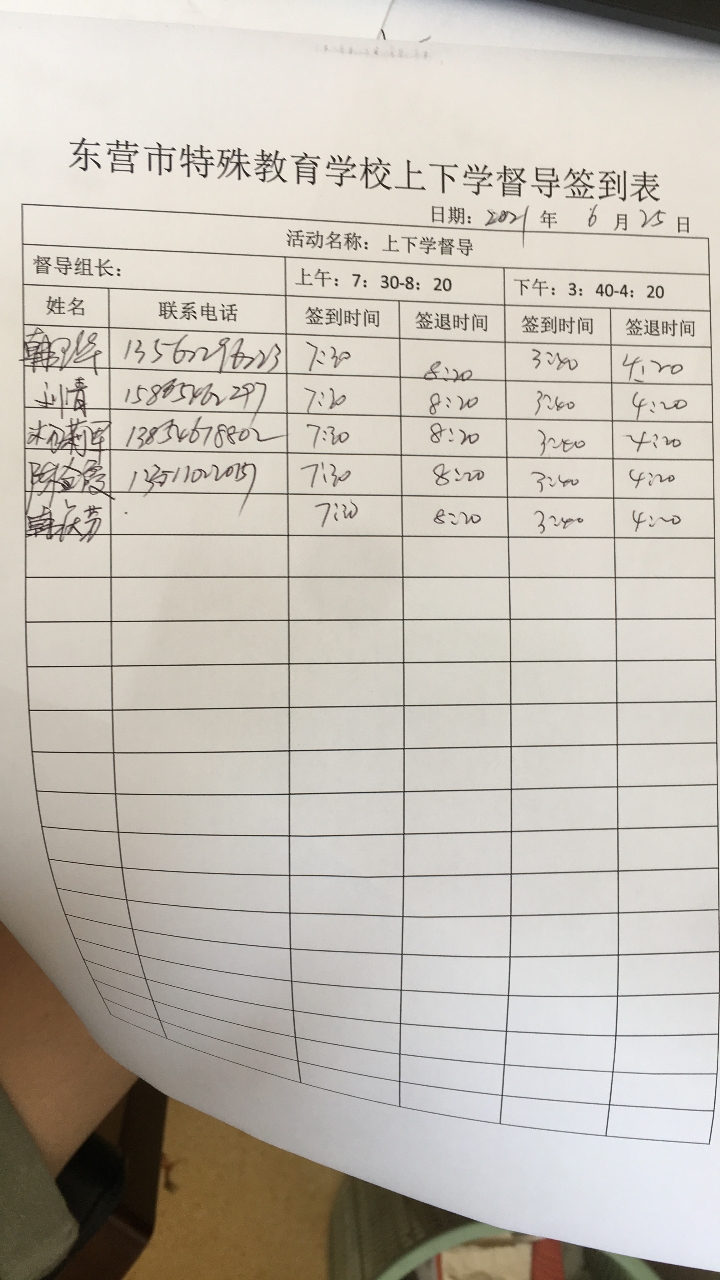 东营市特殊教育学校上下学督导签到表
日期：2021 年 6 月 25 日
活动名称：上下学督导
督导组长： 上午：7：30-8：20 下午：3：40-4：20
姓名 联系电话 签到时间 签退时间 签到时间 签退时间
7:30 8:20 3:40 4:20
刘青 7:30 8:20 3:40 4:20
13854678802 7:30 8:20 3:40 4:20
7:30 8:20 3:40 4:20
7:30 8:20 3:40 4:20